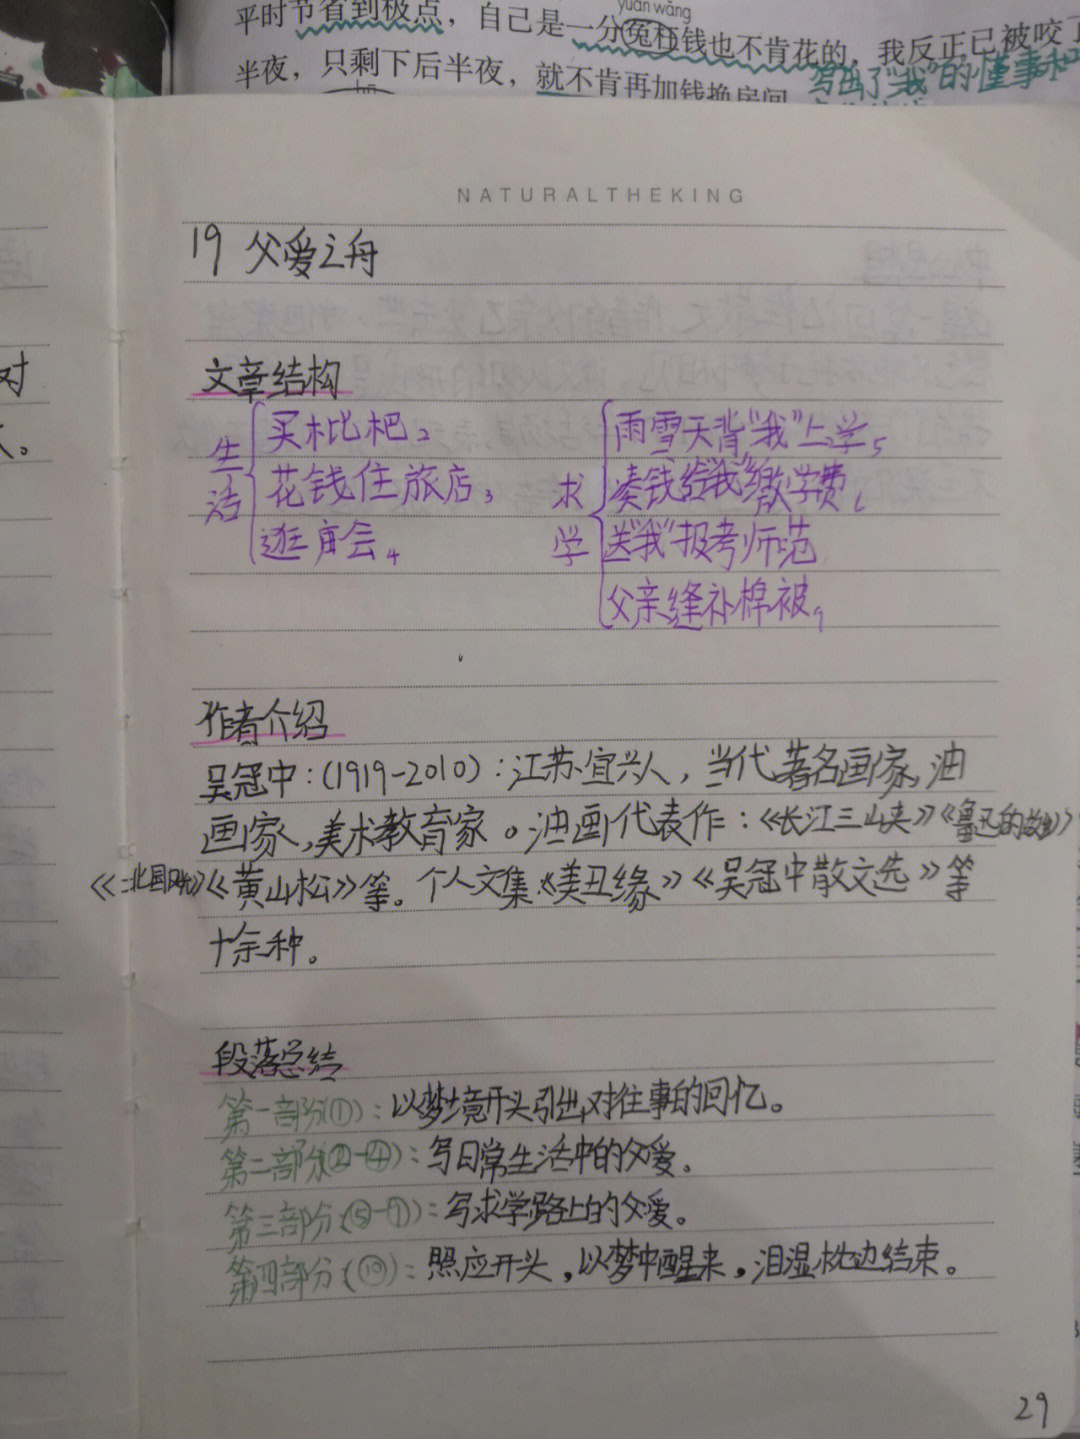 平时节省到极点，自己是一分冤枉钱也不肯花的，我反正已被咬了
yuān wǎng
半夜，只剩下后半夜，就不肯再加钱换房间
写出了"我"的懂事和
对
NATURALTHEKING
19 父爱之舟
文章结构
生活
买枇杷2
花钱住旅店3
逛庙会4
求学
雨雪天背"我"上学5
凑钱给"我"缴学费6
送"我"报考师范
父亲缝补棉被9
作者介绍
吴冠中：(1919-2010)：江苏宜兴人，当代著名画家，油
画家，美术教育家。油画代表作：《长江三峡》《鲁迅的故乡》
《北国风光》《黄山松》等。个人文集《美丑缘》《吴冠中散文选》等
十余种。
段落总结
第一部分(①)：以梦境开头引出对往事的回忆。
第二部分(②-④)：写日常生活中的父爱。
第三部分(⑤-⑨)：写求学路上的父爱。
第四部分(⑩)：照应开头，以梦中醒来，泪湿枕边结束。
29